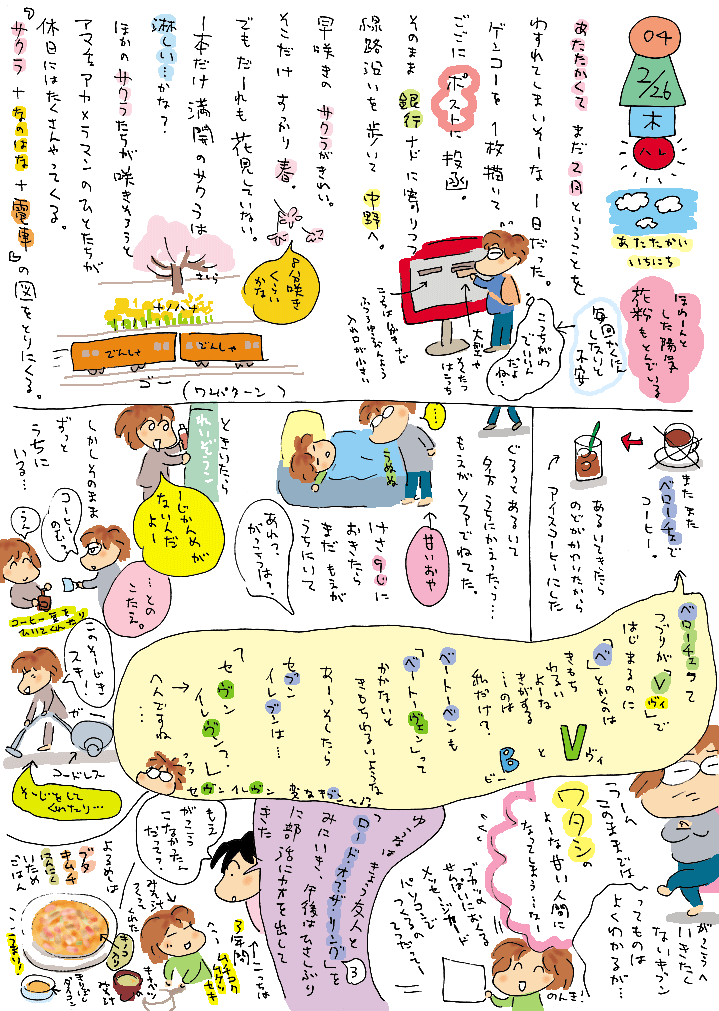 04
2/26
木
ハレ
あたたかい
いちにち
ほわーんと
した陽気
花粉もとんでいる
あたたかくて まだ2月ということを
わすれてしまいそーな1日だった。
ゲンコーを1枚描いて
ごごにポストに投函。
そのまま銀行ナドに寄りつつ
線路沿いを歩いて中野へ。
早咲きのサクラがきれい。
そこだけすっかり春。
でもだーれも花見していない。
1本だけ満開のサクラは
淋しい…かな?
ほかのサクラたちが咲きそろうと
アマチュアカメラマンのひとたちが
休日にはたくさんやってくる。
『サクラ+なのはな+電車』の図をとりにくる。
毎回かくにん
したいと
不安
こっちがわ
でいいん
だよ
ね?
早咲き
くらい
かな
さくら
ナノハナ
でんしゃ
でんしゃ
ゴー
(ワンパターン)
またまた
ベローチェで
コーヒー。
あるいてきたら
のどがかわいたから
アイスコーヒーにした
ぐるっとあるいて
夕方うちにかえったら…
もえがソファでねてた。
…
うぬぬ
甘いおや
けさ9じに
おきたら
まだもえが
うちにいて
あれ?
がっこうは?
ときいたら
れいぞうこ
1じかんめが
ないんだ
よー
…との
こたえ。
しかしそのまま
ずっと
うちに
いる…
コーヒー
のむっ
うん
コーヒー豆を
ひいてくれたり
このそーじき
スキ!
ガー
コードレス
そーじをして
くれたり…
ベローチェって
つづりが「V」で
ヴィ
はじまるのに
「ベ」とかくのは
きもち
わるい
よーな
きがする
…のは
私だけ?
V
ヴィ
と
B
ビー
ベートーベンも
「ベートーヴェン」って
かかないと
きもちわるいような
あーっそしたら
セブン
イレブンは…
セヴン
イレヴン?」
って
→へんですね
…
セヴンイレヴン
変なキブン〜!?
がっこうへ
いきたく
ないキブン
ってものは
よくわかるが…
うーん
このままでは
ワタシの
よーな甘い人間に
なってしまう…なー
のんき!
ブカツの
おくる
せんぱいに
メッセージカード
パソコンで
つくるの
てつだってー
ゆうなはきょう友人と
「ロード・オブ・ザ・リング」を
3
みにいき、午後はひさしぶり
に部活にカオを出して
きた
もえ
がっこう
こなかったん
だって?
こっちは
3年間
ムチコク
ムケッ
セキ
よるめしは
ブタ
キムチ
にんにく
いため
ごはん
うまい!
きりぼし
ダイコン